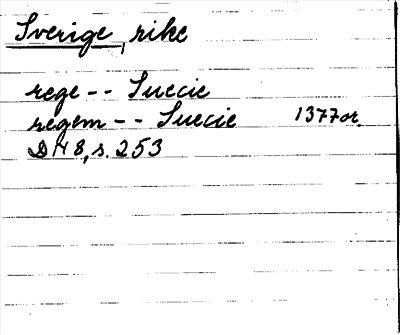 Sverige, rike
rege -- Suecie
regem -- Suecie 1377 or.
DN 8, s. 253